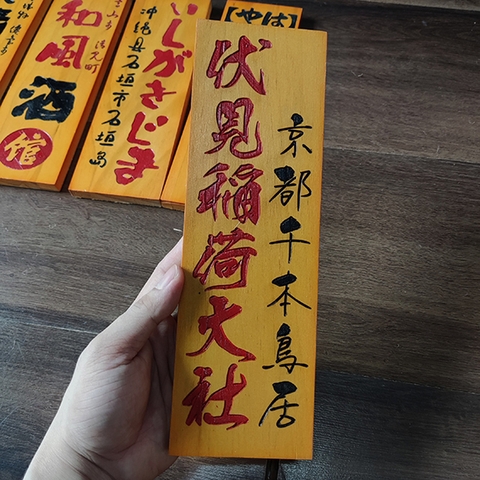 京都千本鳥居
伏見稲荷大社
いしがきじま
沖縄県石垣市石垣島
和風酒館